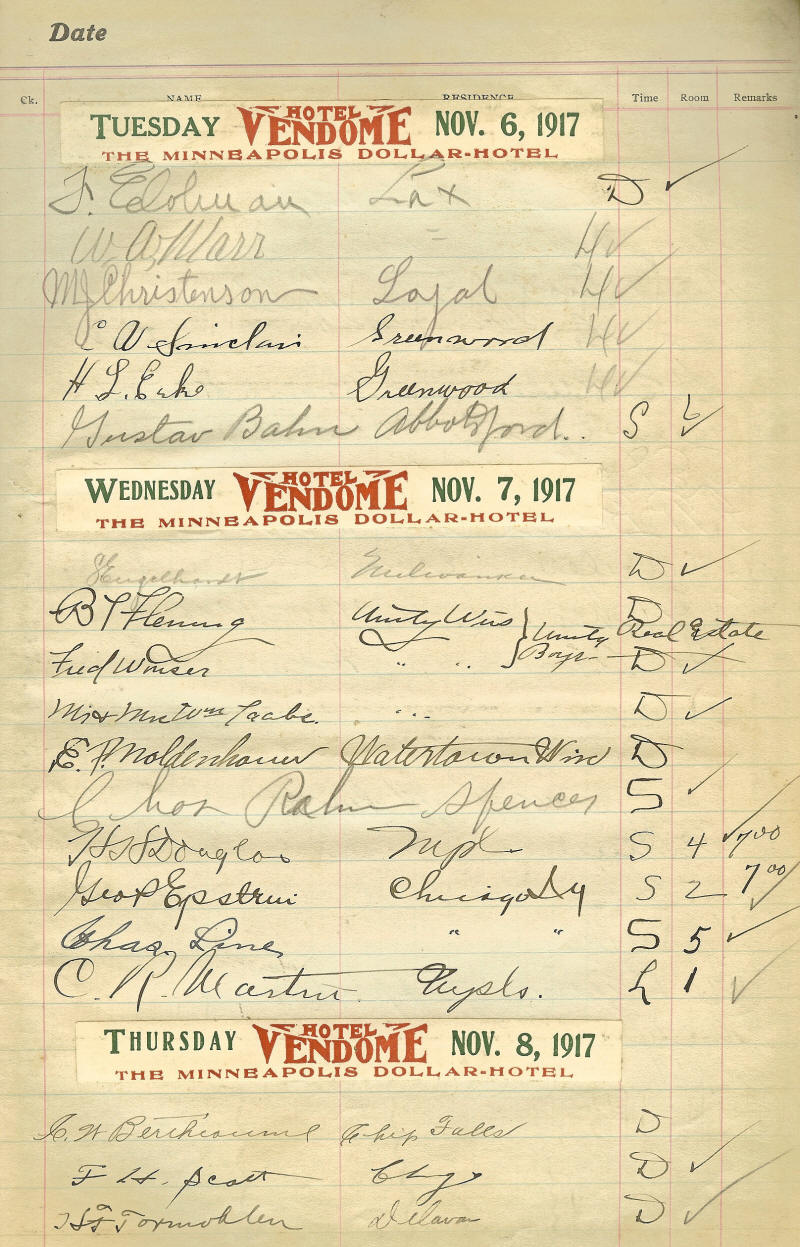 Date
Ck. NAME RESIDENCE Time Room Remarks
TUESDAY HOTEL VENDOME NOV. 6, 1917
THE MINNEAPOLIS DOLLAR-HOTEL
F. Lax D ✓
W. A. Marr " 4 ✓
M J Christenson Loyal 4 ✓
C V Sinclair Greenwood 4 ✓
H L. Greenwood 4 ✓
Gustav Bahn Abbotsford.. S 6 ✓
WEDNESDAY HOTEL VENDOME NOV. 7, 1917
THE MINNEAPOLIS DOLLAR-HOTEL
Engelhardt Milwaukee D ✓
B T Fleming Unity Wis } Unity Real Estate D
Fred Wonser " " Boys D ✓
Mr & Mrs Wm " " D ✓
E. P. Moldenhauer Watertown Wis D
Chas Rahn Spencer S ✓
Douglas Mpls S 4 ✓ 7 00
Geo P Epstein Chicago S 2 7 00 ✓
Chas. Line " " S 5 ✓
C. R. Martin. Mpls. L 1 ✓
THURSDAY HOTEL VENDOME NOV. 8, 1917
THE MINNEAPOLIS DOLLAR-HOTEL
W Berthiaume Chip Falls D
F H. Scott Chgo D ✓
Tormohlen Delavan D ✓